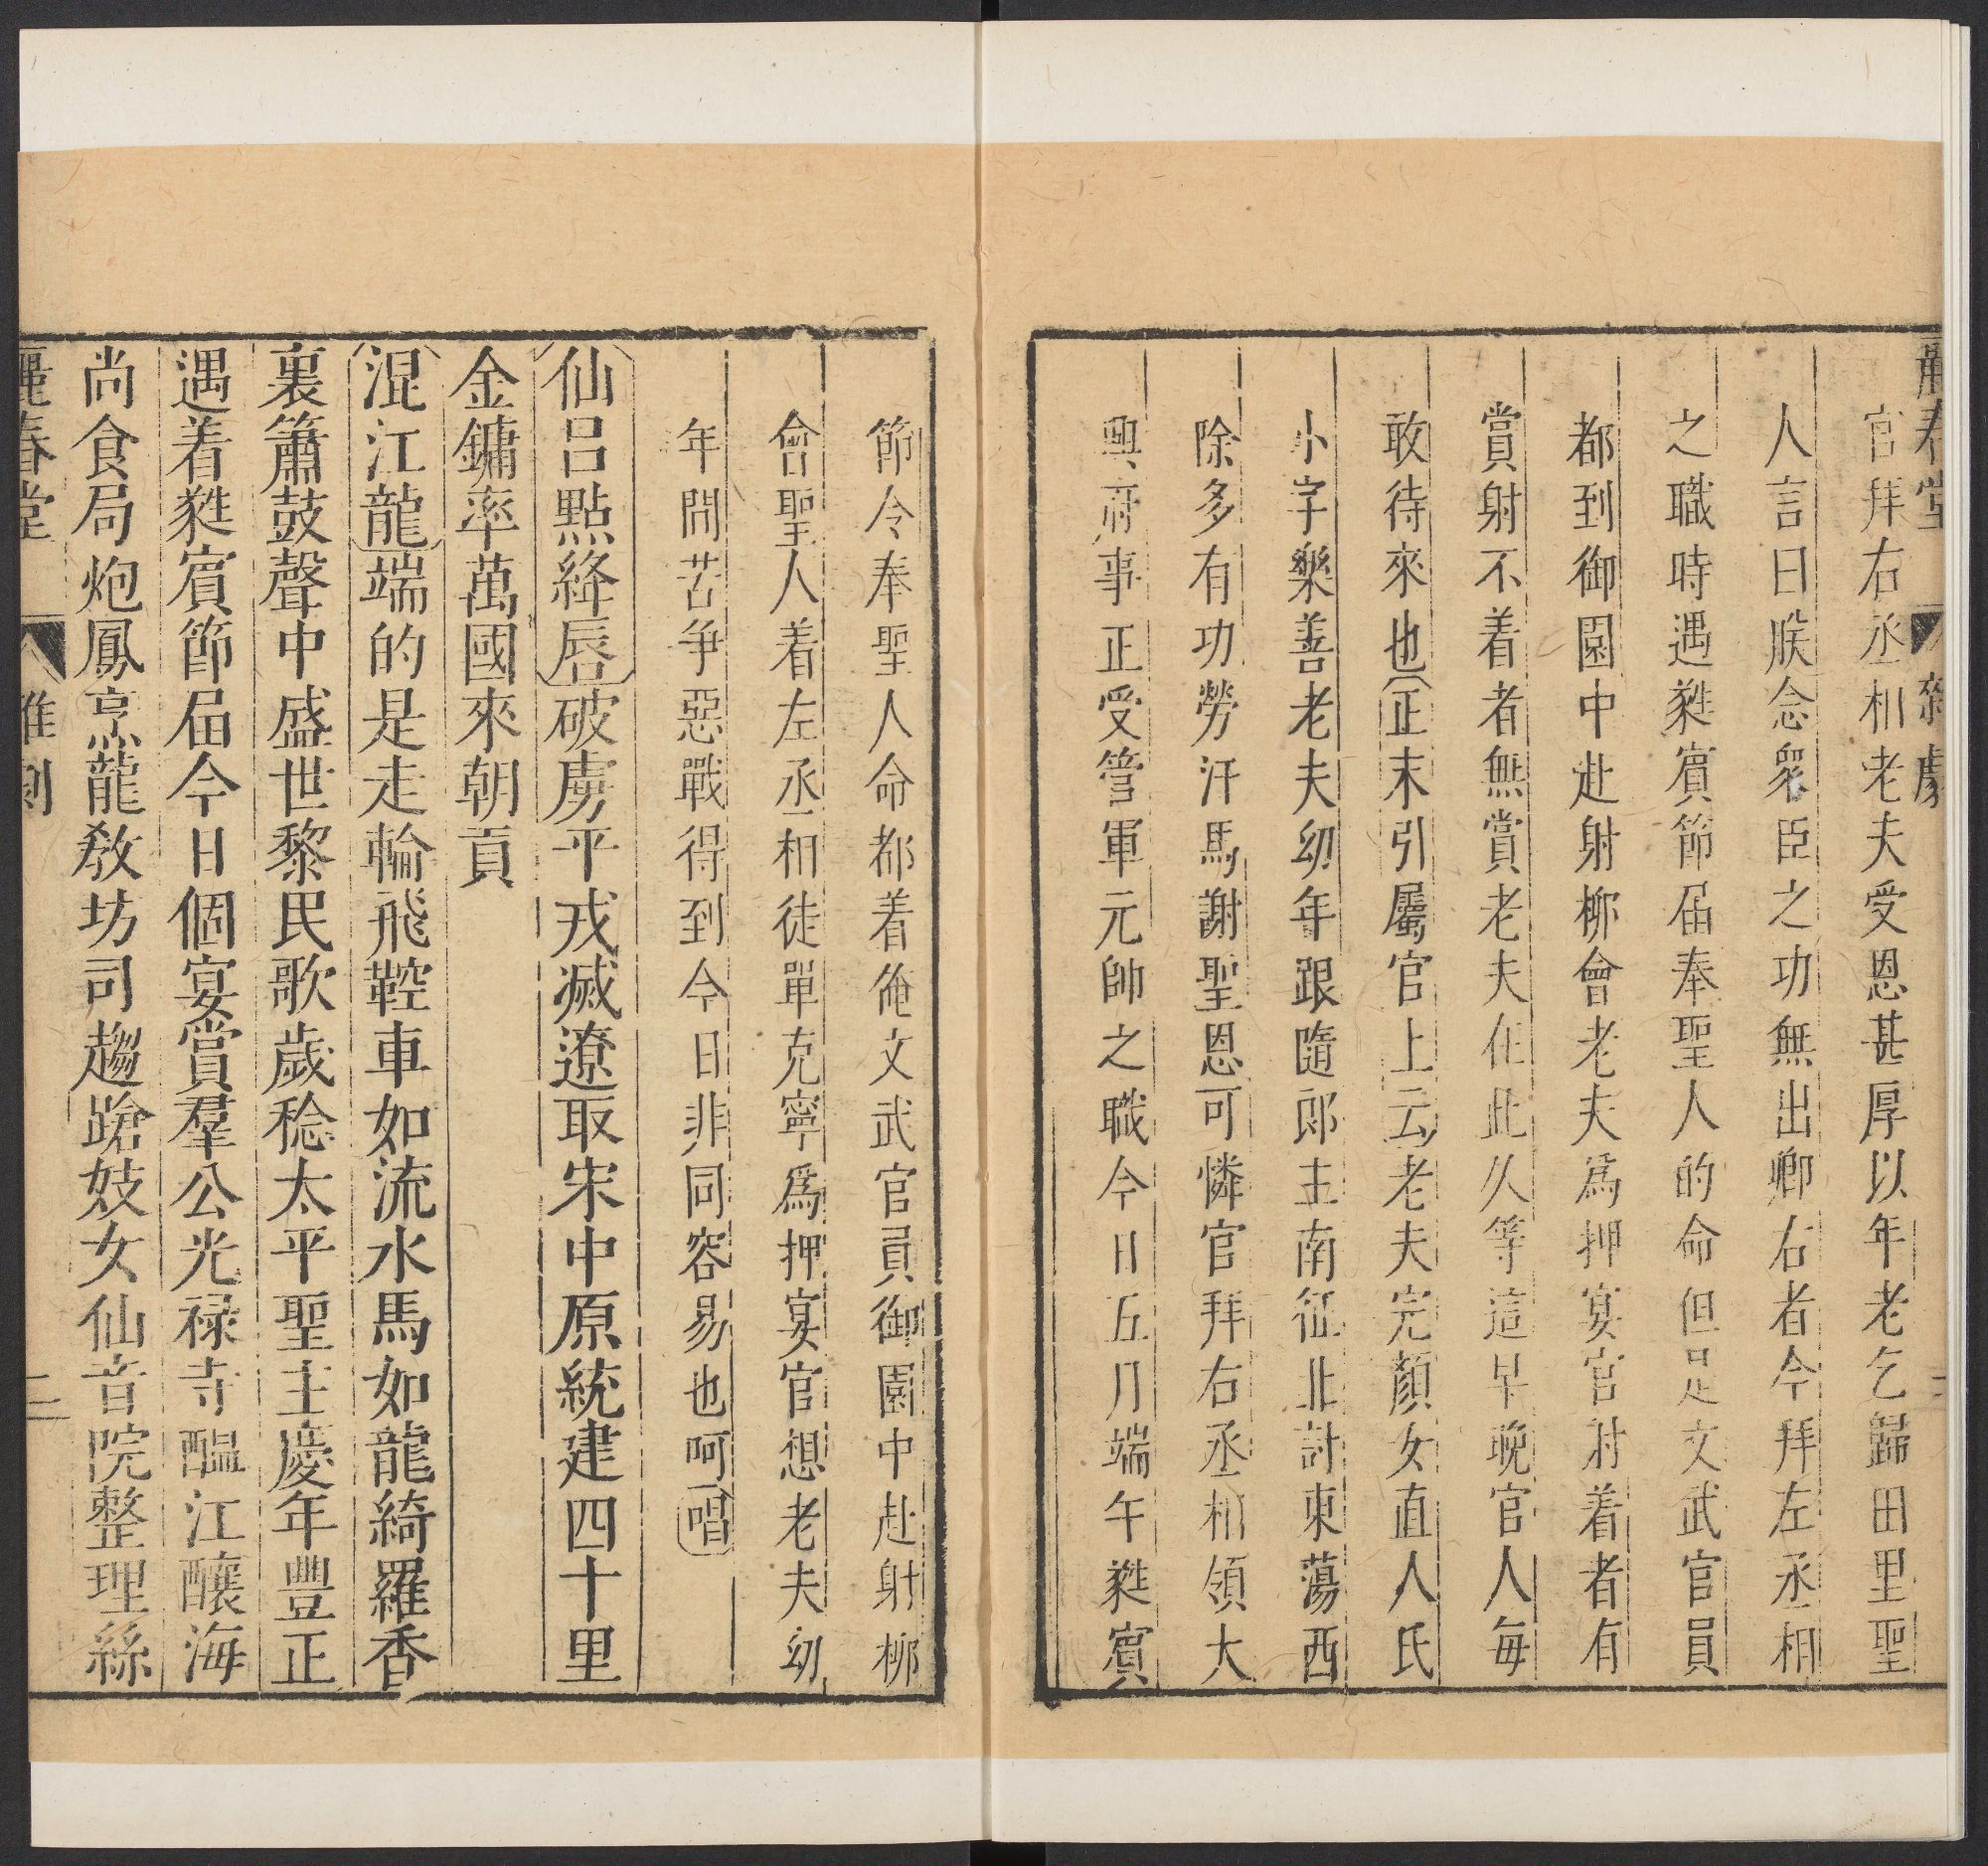 麗春堂 雜劇
官拜右丞相老夫受恩甚厚以年老乞歸田里聖
人言曰朕念衆臣之功無出卿右者今拜左丞相
之職時遇蕤賓節屆奉聖人的命但是文武官員
都到御園中赴射柳會老夫爲押宴官射着者有
賞射不着者無賞老夫在此久等這早晚官人每
敢待來也正末引屬官上云老夫完顏女直人氏
小字樂善老夫幼年跟隨郎主南征北討東蕩西
除多有功勞汗馬謝聖恩可憐官拜右丞相領大
興府事正受管軍元帥之職今日五月端午蕤賓
節令奉聖人命都着俺文武官員御園中赴射柳
會聖人着左丞相徒單克寧爲押宴官想老夫幼
年間苦爭惡戰得到今日非同容易也呵唱
仙呂點絳唇破虜平戎滅遼取宋中原統建四十里
金鏞率萬國來朝貢
混江龍端的是走輪飛鞚車如流水馬如龍綺羅香
裏簫鼓聲中盛世黎民歌歲稔太平聖主慶年豐正
遇着蕤賓節屆今日個宴賞羣公光禄寺醞江釀海
尚食局炮鳳烹龍教坊司趨蹌妓女仙音院整理絲
麗春堂 二